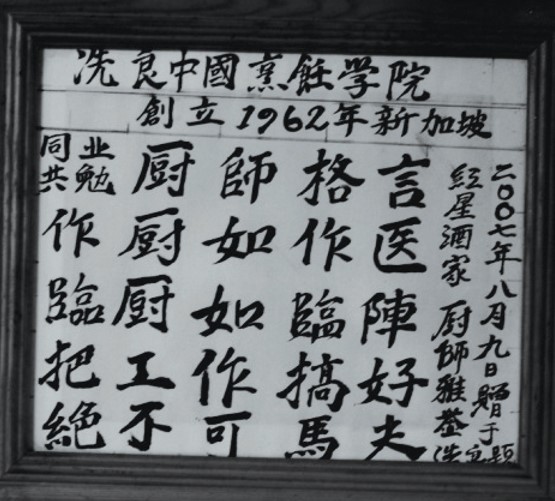 冼良中國烹飪学院
創立1962年新加坡
同业
共勉
厨師格言
作厨如作医
臨厨如臨陣
把工作搞好
絶不可馬夫
二〇〇七年八月九日贈于
紅星酒家 厨師雅荟